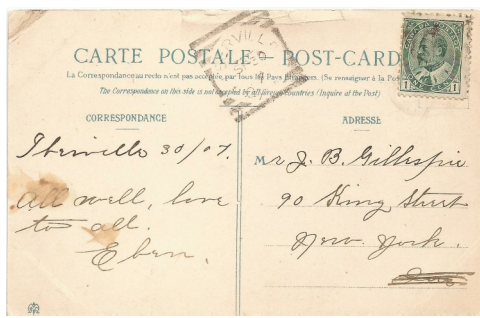 CARTE POSTALE – POST-CARD
La Correspondance au recto n'est pas acceptée par tous les Pays Étrangers. (Se renseigner à la Poste
The Correspondence on this side is not accepted by all foreign countries (Inquire at the Post)
CORRESPONDANCE
Iberville 30/07.
All well, love
to all.
Eben.
ADRESSE
Mr J. B. Gillespie
90 King Street
New York.
1 1